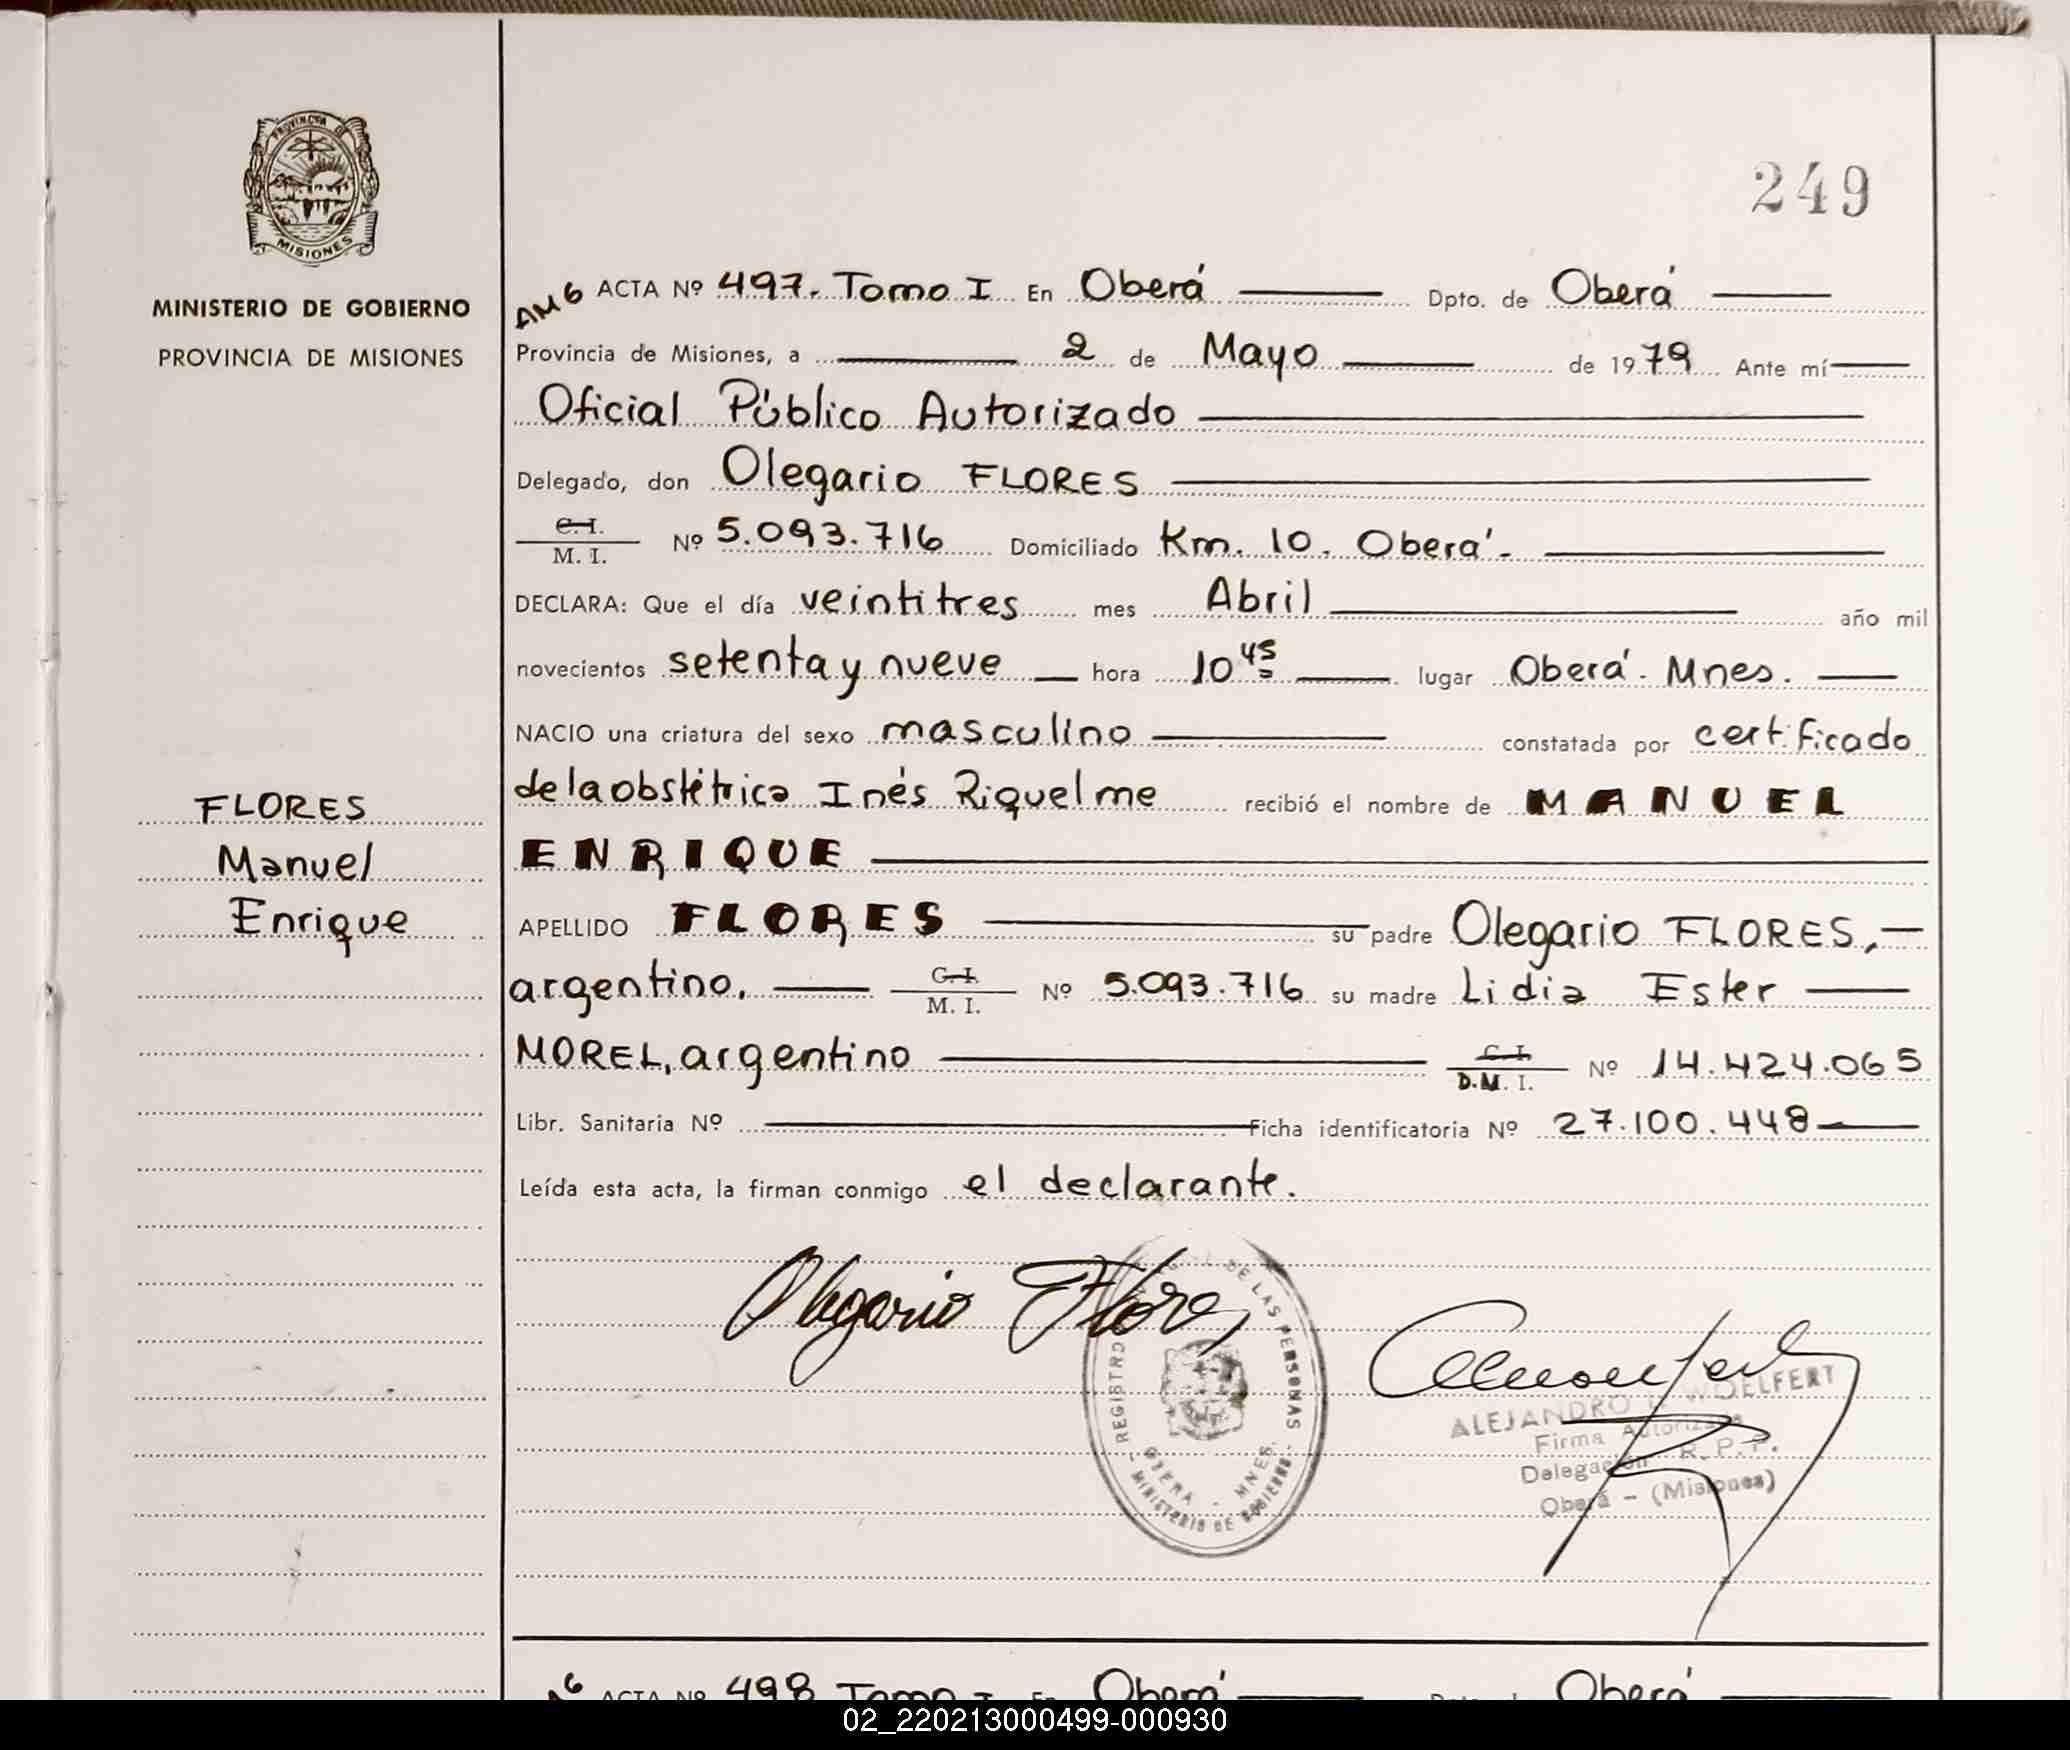 PROVINCIA DE
MISIONES
MINISTERIO DE GOBIERNO
PROVINCIA DE MISIONES
249
AM6 ACTA Nº 497. Tomo I En Oberá Dpto. de Oberá
Provincia de Misiones, a 2 de Mayo de 1979 Ante mí
Oficial Público Autorizado
Delegado, don Olegario FLORES
C. I.
M. I. Nº 5.093.716 Domiciliado Km. 10. Oberá.
DECLARA: Que el día veintitres mes Abril año mil
novecientos setenta y nueve hora 10 45 lugar Oberá. Mnes.
NACIO una criatura del sexo masculino constatada por certificado
de la obstétrica Inés Riquelme recibió el nombre de MANUEL
ENRIQUE
FLORES
Manuel
Enrique
APELLIDO FLORES su padre Olegario FLORES,
argentino. C. I.
M. I. Nº 5.093.716 su madre Lidia Ester
MOREL, argentino C. I.
D.M. I. Nº 14.424.065
Libr. Sanitaria Nº Ficha identificatoria Nº 27.100.448
Leída esta acta, la firman conmigo el declarante.
Olegario Flores
REGISTRO DE LAS PERSONAS
OBERA - MNES.
- MINISTERIO DE GOBIERNO -
ALEJANDRO WOELFERT
Firma Autorizada
Delegación R.P.P.
Oberá - (Misiones)
ACTA Nº 498 Tomo I En Oberá Dpto. de Oberá
02_220213000499-000930